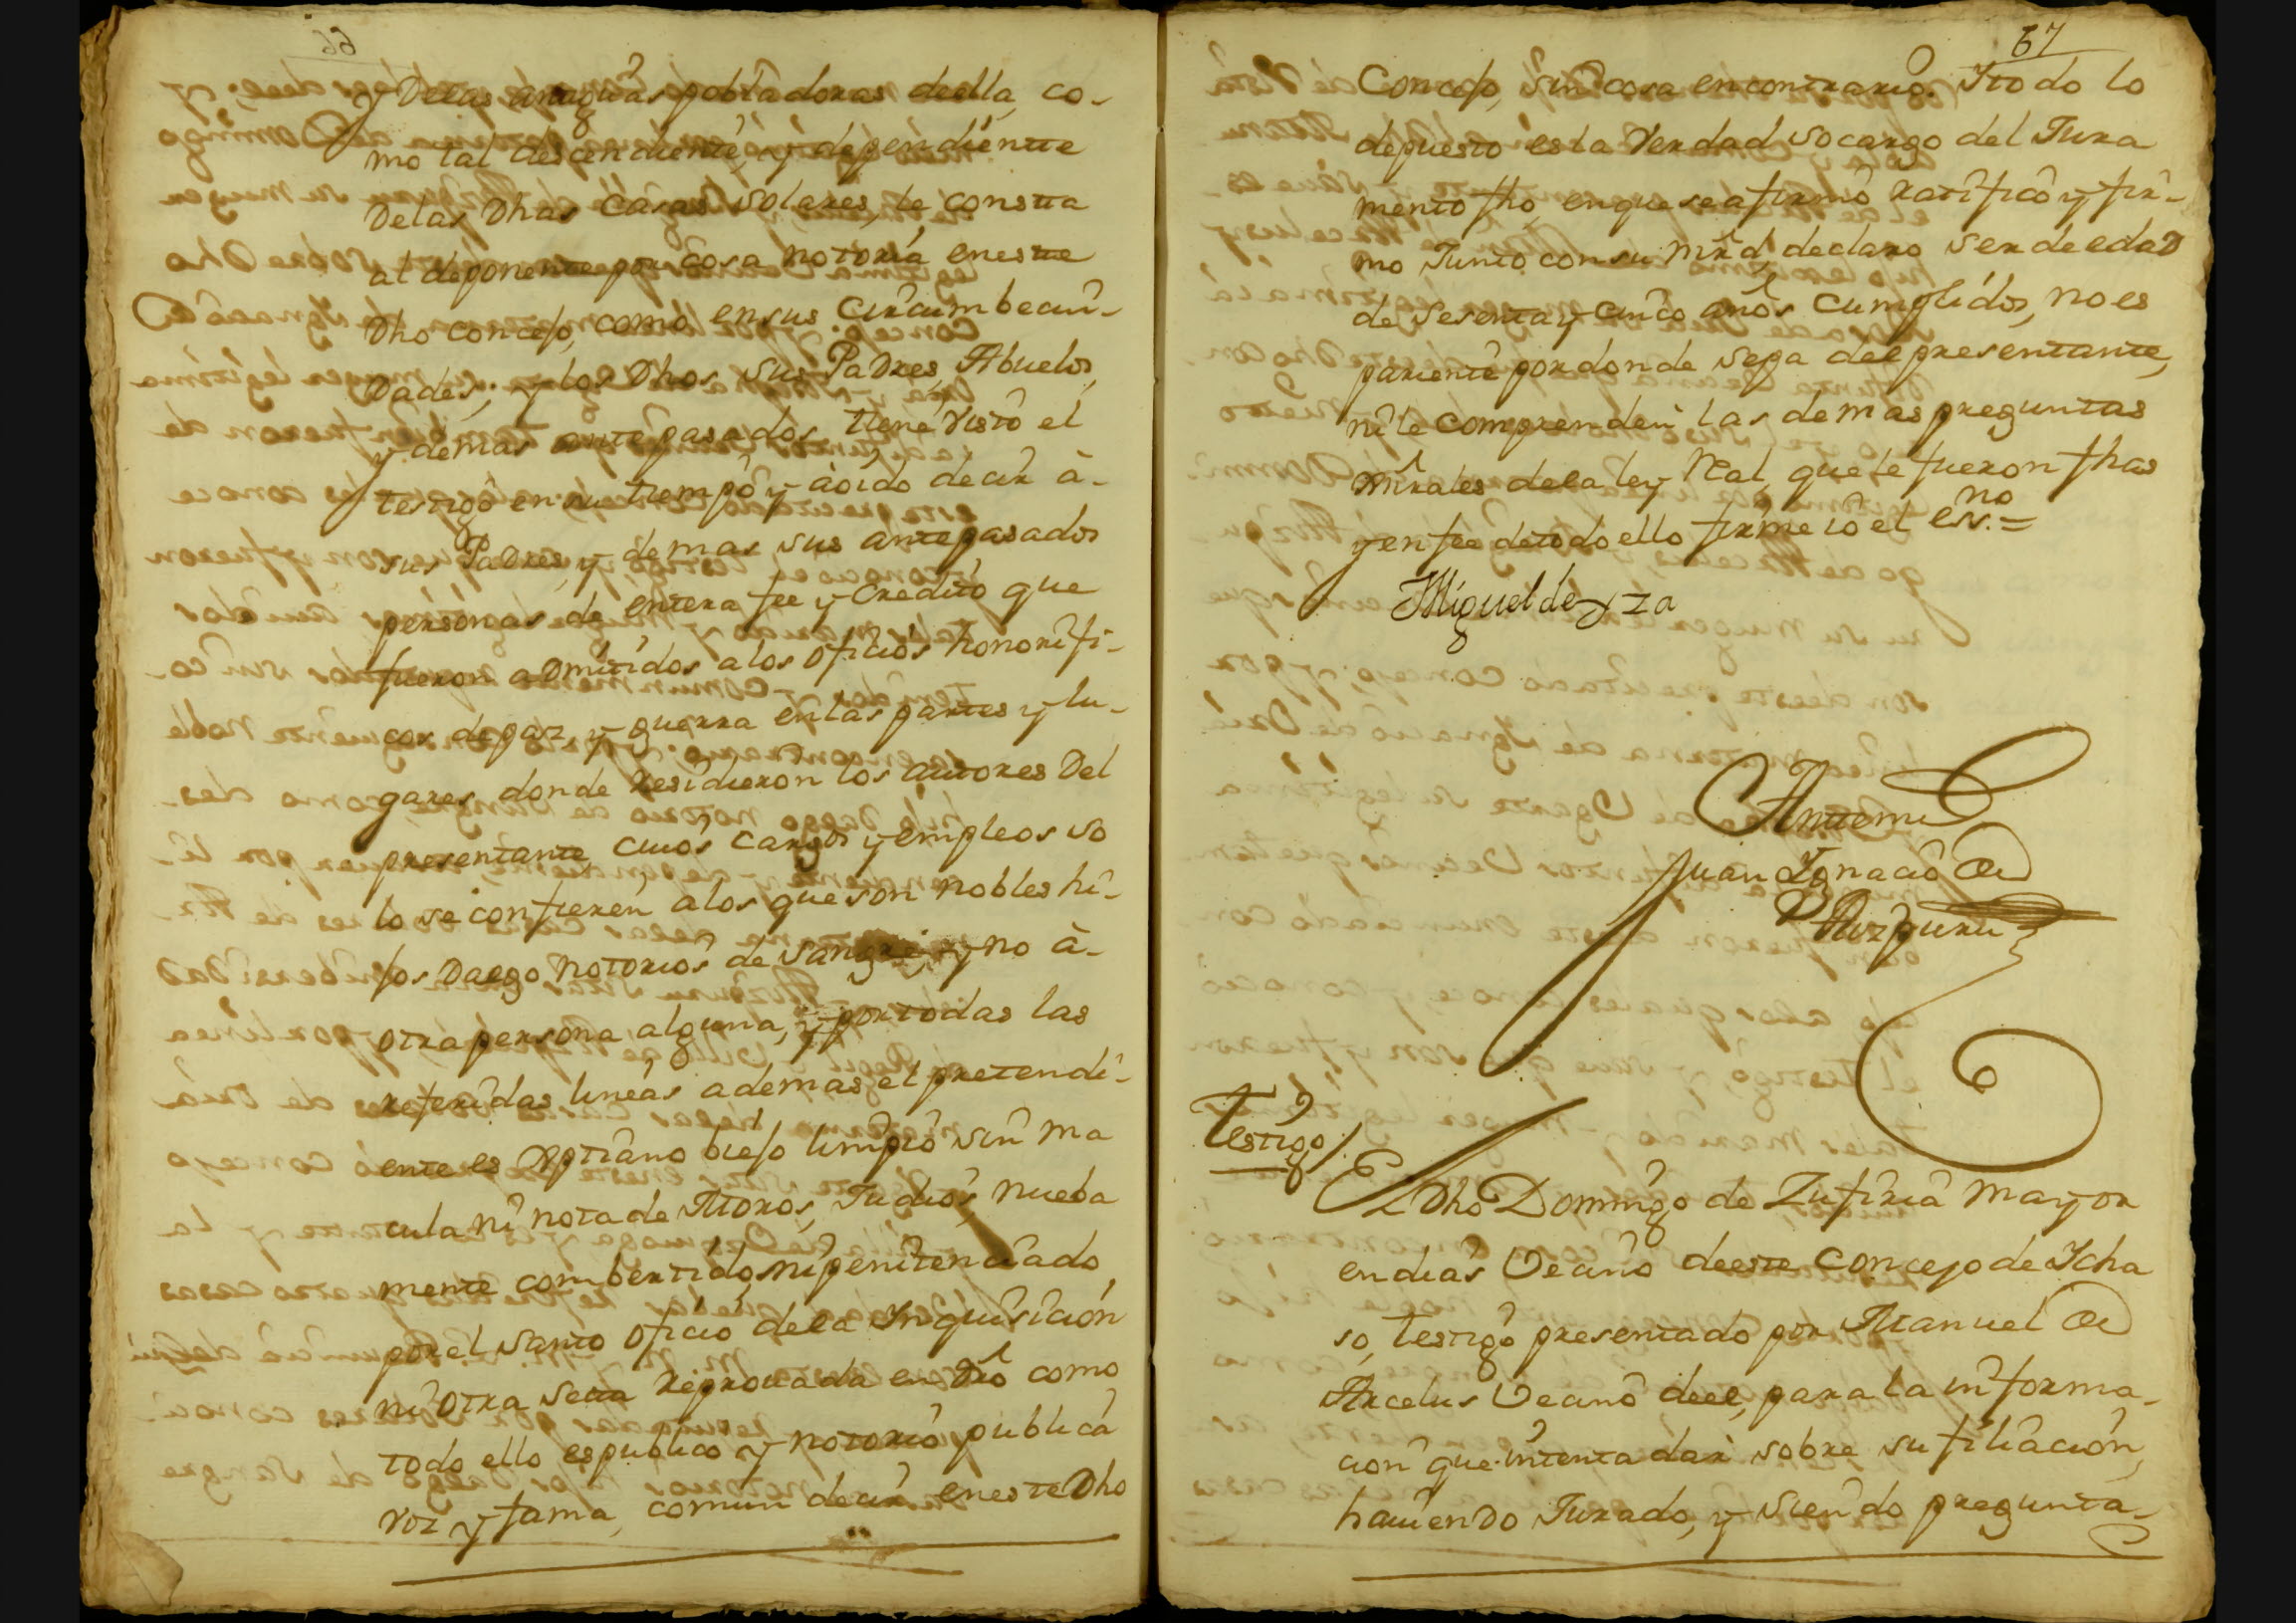 y Delas antiguas pobladoras deella, co-
mo tal descendiente, y dependientte
Delas Dhas Casas solares, le constta
al deponente por cosa notoria eneste
Dho concejo, como ensus Circumbecin-
Dades; y los Dhos sus Padres, Abuelos,
y demas antepasados, tiene visto el
testigo en su tiempo y àoido decir à-
sus Padres, y demas sus antepasados
personas de entera fee y Credito que
fueron aDmitidos alos oficios honorifi-
cos depaz, y guerra enlas partes y lu-
gares, donde Residieron los autores Del
presentante, cuios cargos y empleos so
lo se confieren alos que son nobles hi-
jos Dalgo notorios de sangre, y no à-
otra persona alguna, y portodas las
referidas lineas ademas el pretendi-
ente es Xptiano biejo limpio sin ma
cula ni nota de Moros, Judios, nueba
mente combertido, nipenitenciado
porel santo oficio dela Inquisicion
ni otra secta Reprouada en Dro como
todo ello espublico y notorio, publica
voz y fama, comun decir eneste Dho
67
Concejo, sin cosa encontrario. Ytodo lo
depuesto es la Verdad socargo del Jura
mento fho, enque seafirmo ratifico y fir-
mo Junto con su mrd, declaro ser deedaD
de sesenta y cinco años cumplidos, no es
pariente por donde sepa del presentante,
nile comprenden las demas preguntas
xnrales dela ley Real, que le fueron fhas
y en fee detodo ello firme io el essno. =
Miguel de Yza
Anttemi
Juan Ygnacio de
Aizpuru
Testigo/.
El Dho Domingo de Zufiria mayor
endias Vecino deeste Concejo de Ycha
so, testigo presentado por Manuel de
Arcelus Vecino deel, para la informa-
cion que intenta dar sobre su filiacion,
hauienDo Jurado, y siendo pregunta-